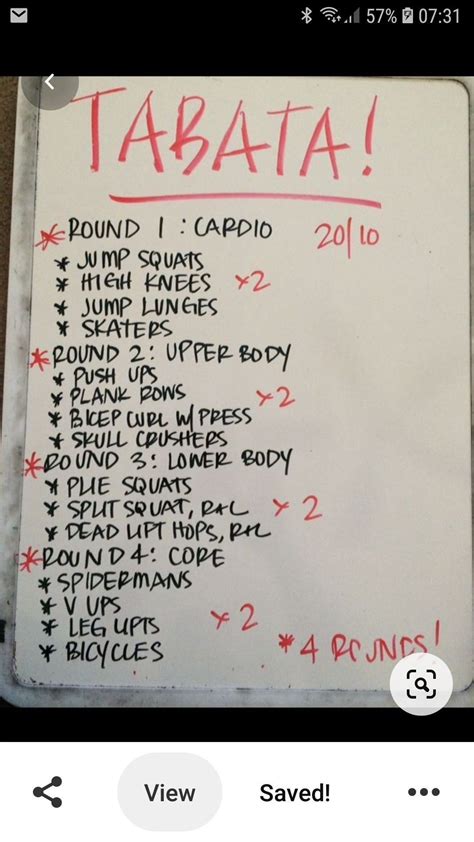 57% 07:31
TABATA!
*ROUND 1: CARDIO 20/10
* JUMP SQUATS
* HIGH KNEES x2
* JUMP LUNGES
* SKATERS
*ROUND 2: UPPER BODY
* PUSH UPS
* PLANK ROWS x2
* BICEP CURL W/PRESS
* SKULL CRUSHERS
*ROUND 3: LOWER BODY
* PLIE SQUATS
* SPLIT SQUAT, R+L x2
* DEAD LIFT HOPS, R+L
*ROUND 4: CORE
* SPIDERMANS
* V UPS
* LEG LIFTS x2
* BICYCLES
*4 ROUNDS!
View Saved!